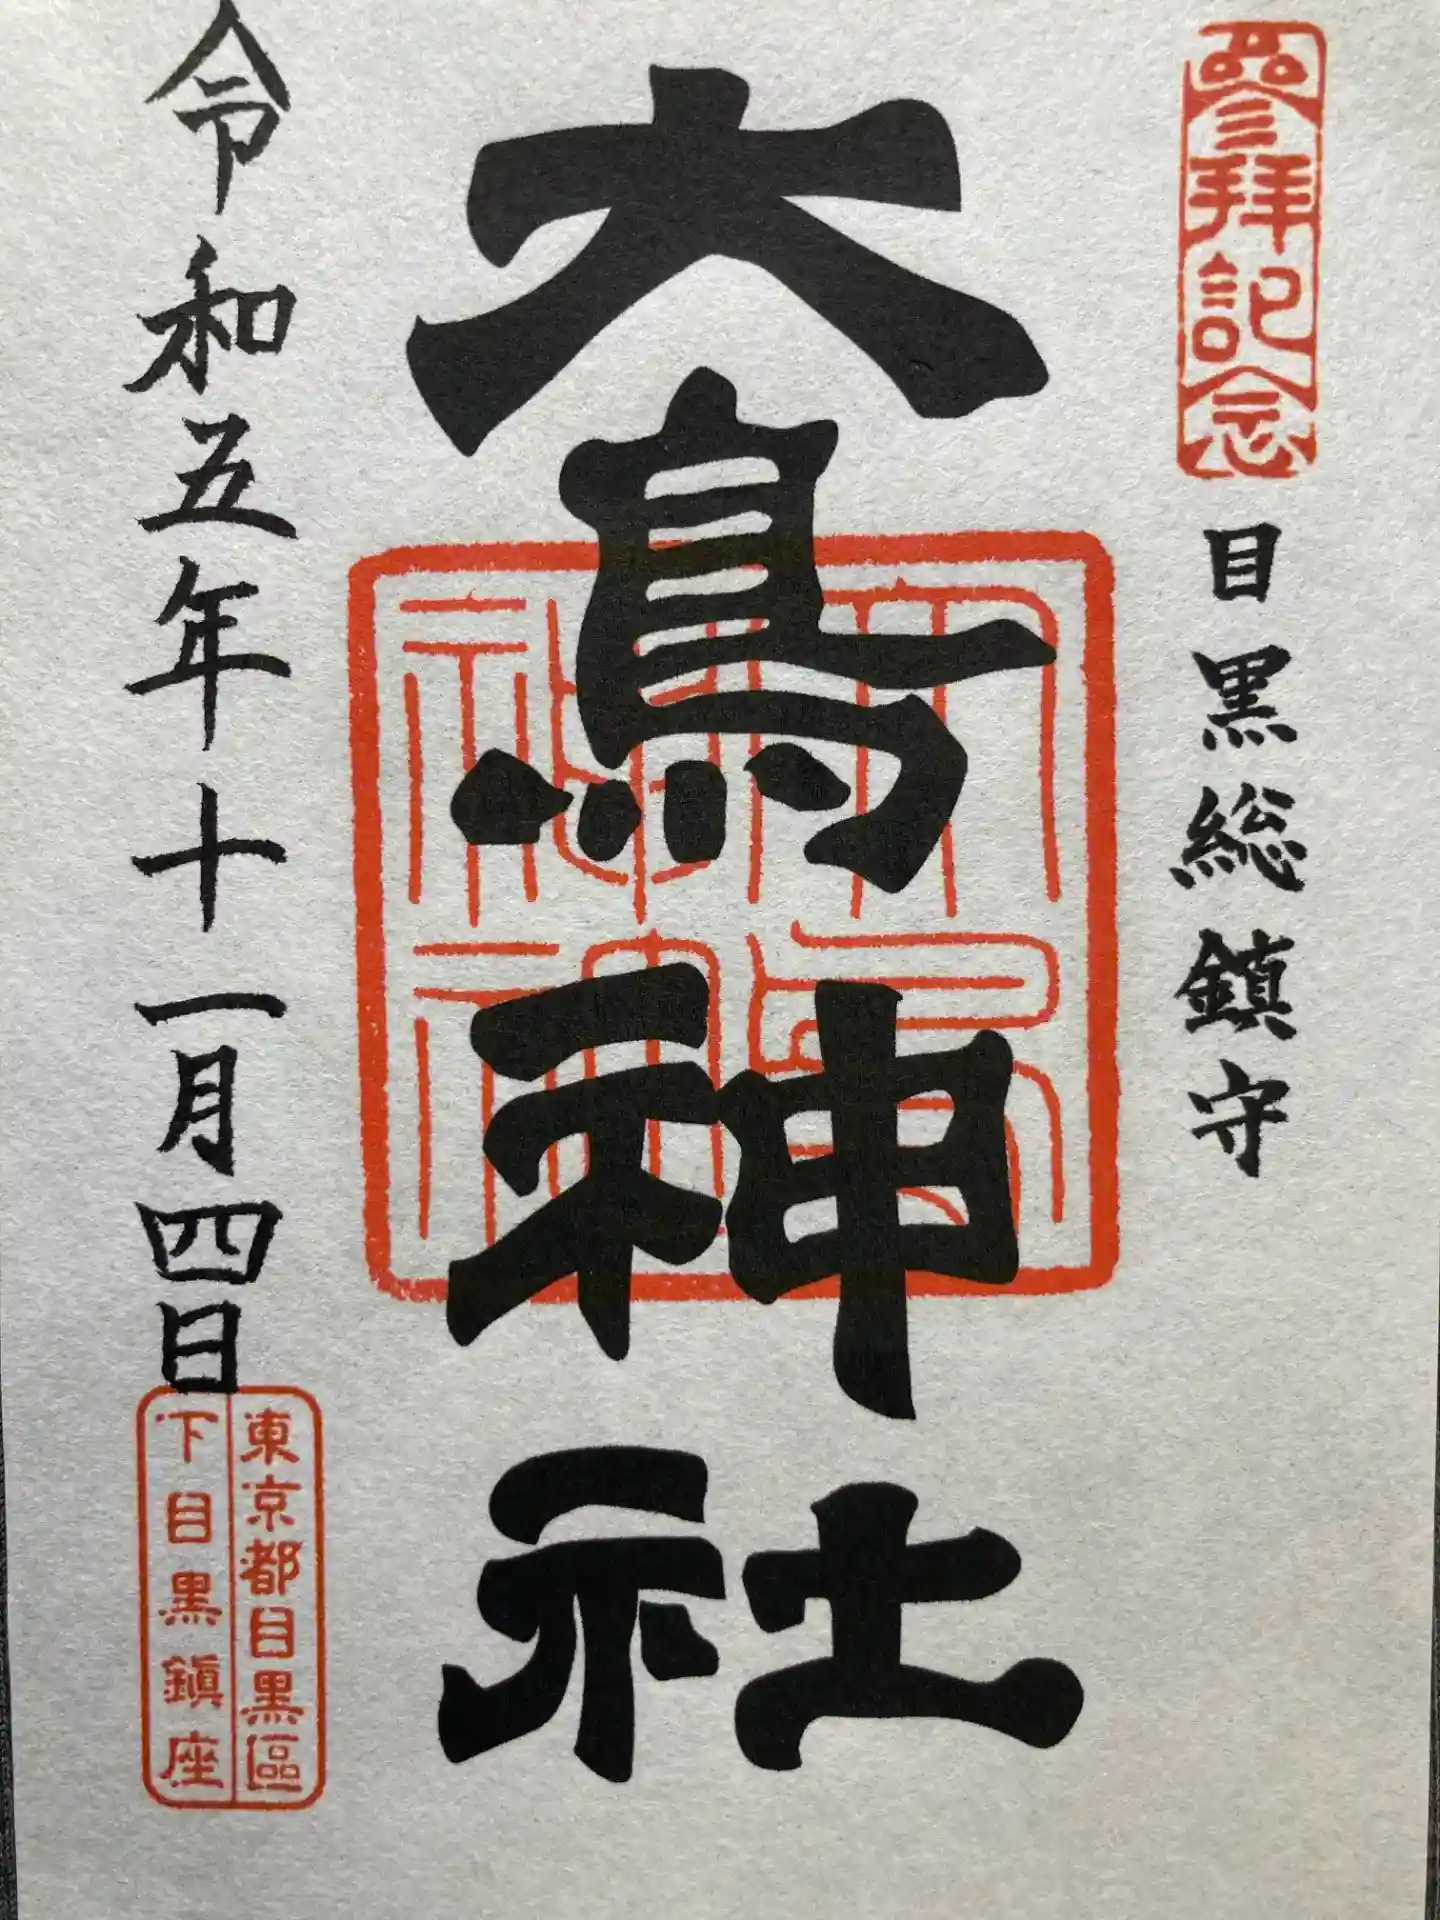 參拜記念
目黒総鎮守
大鳥神社
大鳥神社神印
令和五年十一月四日
東京都目黒區
下目黒鎮座